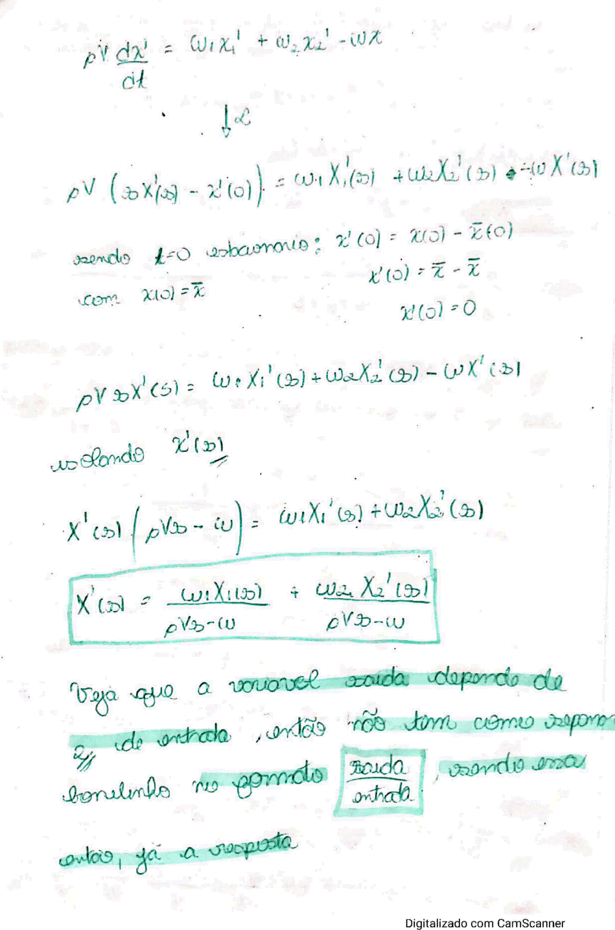 ρV dx'/dt = ω₁x₁' + ω₂x₂' - ωx
↓ℒ
ρV (sX'(s) - x'(0)) = ω₁X₁'(s) + ω₂X₂'(s) - ωX'(s)
sendo t=0 estacionário: x'(0) = x(0) - x̄(0)
com x(0) = x̄
x'(0) = x̄ - x̄
x'(0) = 0
ρVsX'(s) = ω₁X₁'(s) + ω₂X₂'(s) - ωX'(s)
isolando X'(s)
X'(s) (ρVs - ω) = ω₁X₁'(s) + ω₂X₂'(s)
X'(s) = ω₁X₁(s)/ρVs-ω + ω₂X₂'(s)/ρVs-ω
Veja que a variavel saida depende de
2 de entrada, então não tem como separar
bonitinho no formato saida/entrada, sendo essa
então, já a resposta
Digitalizado com CamScanner